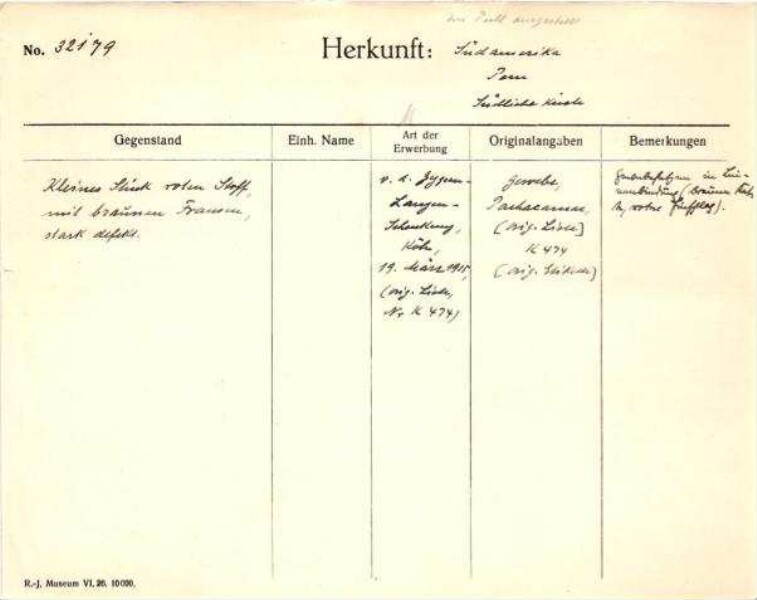 im Pult ausgestellt
No. 32179
Herkunft: Südamerika
Peru
Südliche Küste
Gegenstand
Einh. Name
Art der
Erwerbung
Originalangaben
Bemerkungen
Kleines Stück roten Stoff,
mit braunen Fransen,
stark defekt.
v. d. Zypen-
Langen-
Schenkung,
Köln,
19. März 1915,
(orig. Liste,
Nr K 474)
Gewebe,
Pachacamac,
(orig. Liste)
K 474
(orig. Etikett)
in Lein-
wandbindung (braune
rotne
R.-J. Museum VI. 26. 10000.